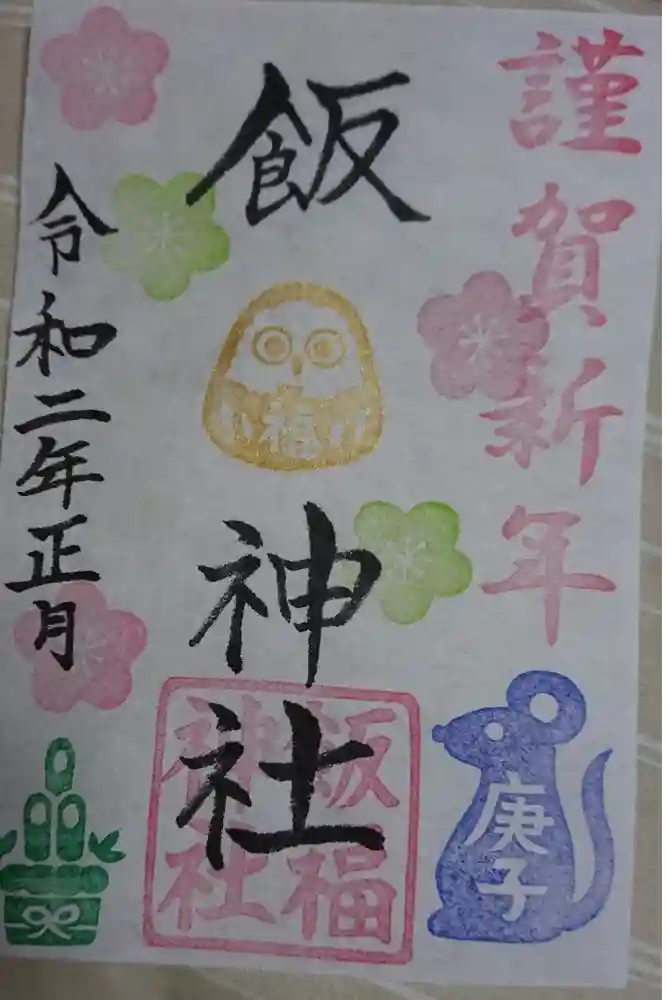 謹賀新年
飯
福
神社
令和二年正月
飯福
神社
庚子